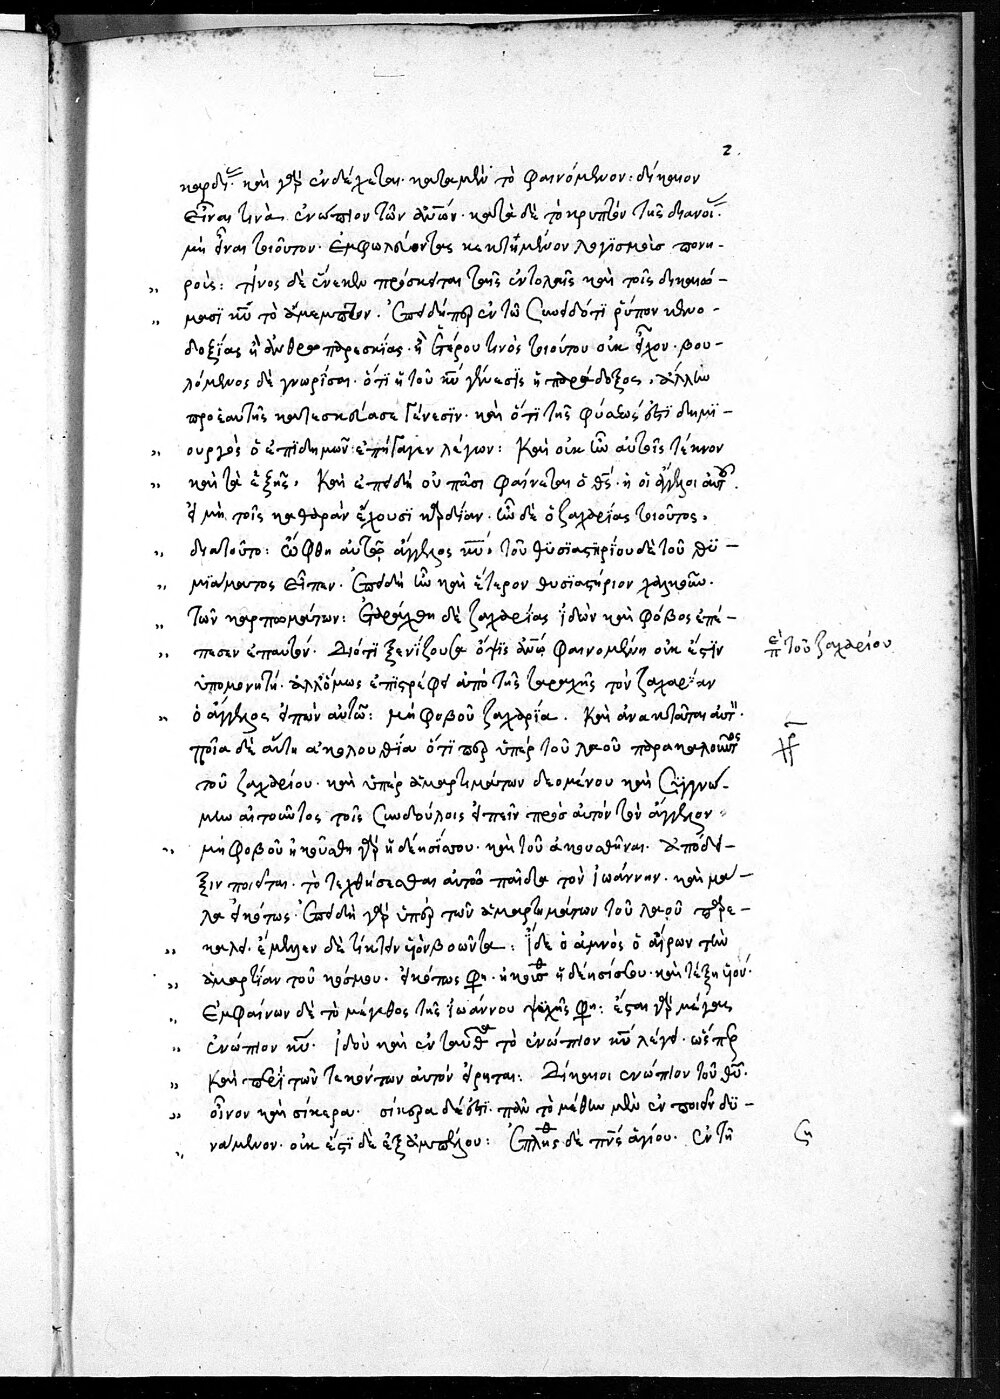 2.
καρδι· καὶ γὰρ ἐνδέχεται· κατα μὲν τὸ φαινόμενον· δίκαιον
εἶναι τινὰ ἐνώπιον τῶν ἀνων· κατὰ δὲ τὸ κρυπτὸν τῆς διανοι·
μὴ εἶναι τοιοῦτον· ἐμφωλεύοντας κεκτημένον λογϊσμοὺς πονη-
ροὺς· τίνος δὲ ἕνεκεν πρόσκειται ταῖς ἐντολαῖς καὶ τοῖς δικαιώ-
μασϊ κυ τὸ ἄμεμπτον. ἐπειδήπερ ἐν τῶ ῥύπον κενο-
δοξίας ἢ ἀνθρωπαρεσκίας· ἢ ἑτέρου τινὸς τοιούτου οὐκ εἶχον· βου-
λόμενος δὲ γνωρίσαι· ὅτϊ ἡ τοῦ κυ γένεσϊς ἡ παράδοξος, ἄλλην
προ ἑαυτῆς κατεσκεύασε γένεσϊν· καὶ ὅτϊ τῆς φύσεως ἐστϊ δημϊ-
ουργὸς ὁ ἐπϊδημῶν· ἐπήγαγεν λέγων: Καὶ οὐκ ἦν αὐτοῖς τέκνον
καὶ τὰ ἑξῆς, Καὶ ἐπειδὴ οὐ πᾶσι φαίνεται ὁ θς· ἢ οἱ ἄγγελοι αὐτου·
εἰ μὴ τοῖς καθαρὰν ἔχουσϊ καρδίαν· ἦν δὲ ὁ ζαχαρίας τοιοῦτος,
διατοῦτο: ὤφθη αὐτῶ ἄγγελος κυ, τοῦ θυσϊαστηρίου δὲ τοῦ θυ-
μϊάματος εἶπεν· ἐπειδὴ ἦν καὶ ἕτερον θυσϊαστήριον χαλκοῦν·
τῶν καρπωμάτων: ἐταράχθη δὲ ζαχαρίας ἰδὼν καὶ φόβος ἐπέ-
πεσεν ἐπαυτόν· Διότϊ ξενίζουσα ὄψϊς ἀνω φαινομένη οὐκ ἔστϊν
ἐπὶ τοῦ ζαχαρίου
ὑπομονητή· ἀλλ' ὅμως ἐπϊστρέφει ἀπὸ τῆς ταραχῆς τὸν ζαχαρίαν
ὁ ἄγγελος εἰπὼν αὐτῶ: μὴ φοβοῦ ζαχαρία. Καὶ ἀνακτᾶται αὐτ·
ποία δὲ αὕτη ἀκολουθία ὅτϊ περ ὑπὲρ τοῦ λαοῦ παρακαλοῦντος
τοῦ ζαχαρίου· καὶ ὑπὲρ ἁμαρτημάτων δεομένου καὶ συγγνώ-
μην αἰτοῦντος τοῖς συνδούλοις εἰπεῖν πρὸς αὐτὸν τὸν ἄγγελον
μὴ φοβοῦ εἰσηκούσθη γὰρ ἡ δέησίς σου· καὶ τοῦ ἀκουσθῆναι· ἀπόδει-
ξιν ποιεῖται· τὸ τεχθήσεσθαι αὐτοῦ παῖδα τὸν ἰωάννην· καὶ μά-
λα εἰκότως· ἐπειδὴ γὰρ ὑπὲρ τῶν ἁμαρτημάτων τοῦ λαοῦ παρε-
κάλει· ἔμελλεν δὲ τίκτειν υἱὸν βοῶντα: ἴδε ὁ ἀμνὸς ὁ αἴρων τὴν
ἁμαρτίαν τοῦ κόσμου· εἰκότως φη· εἰσηκούσθη ἡ δέησίς σου· καὶ τέξη υἱόν·
ἐμφαίνων δὲ τὸ μέγεθος τῆς ἰωάννου ψυχῆς φη: ἔσται γὰρ μέγας
ἐνώπιον κυ· ἰδοὺ καὶ ἐνταῦθα τὸ ἐνώπιον κυ λέγει· ὥσπερ
καὶ περὶ τῶν τεκόντων αὐτὸν εἴρηται: Δίκαιοι ἐνώπιον τοῦ θυ·
οἶνον καὶ σίκερα· σίκερα δέ ἐστϊ· πᾶν τὸ μέθην μὲν ἐνποιεῖν δυ-
νάμενον· οὐκ ἔστϊ δὲ ἐξ ἀμπέλου: ἐπλήσθη δὲ πνς ἁγίου· ἐν τῆ